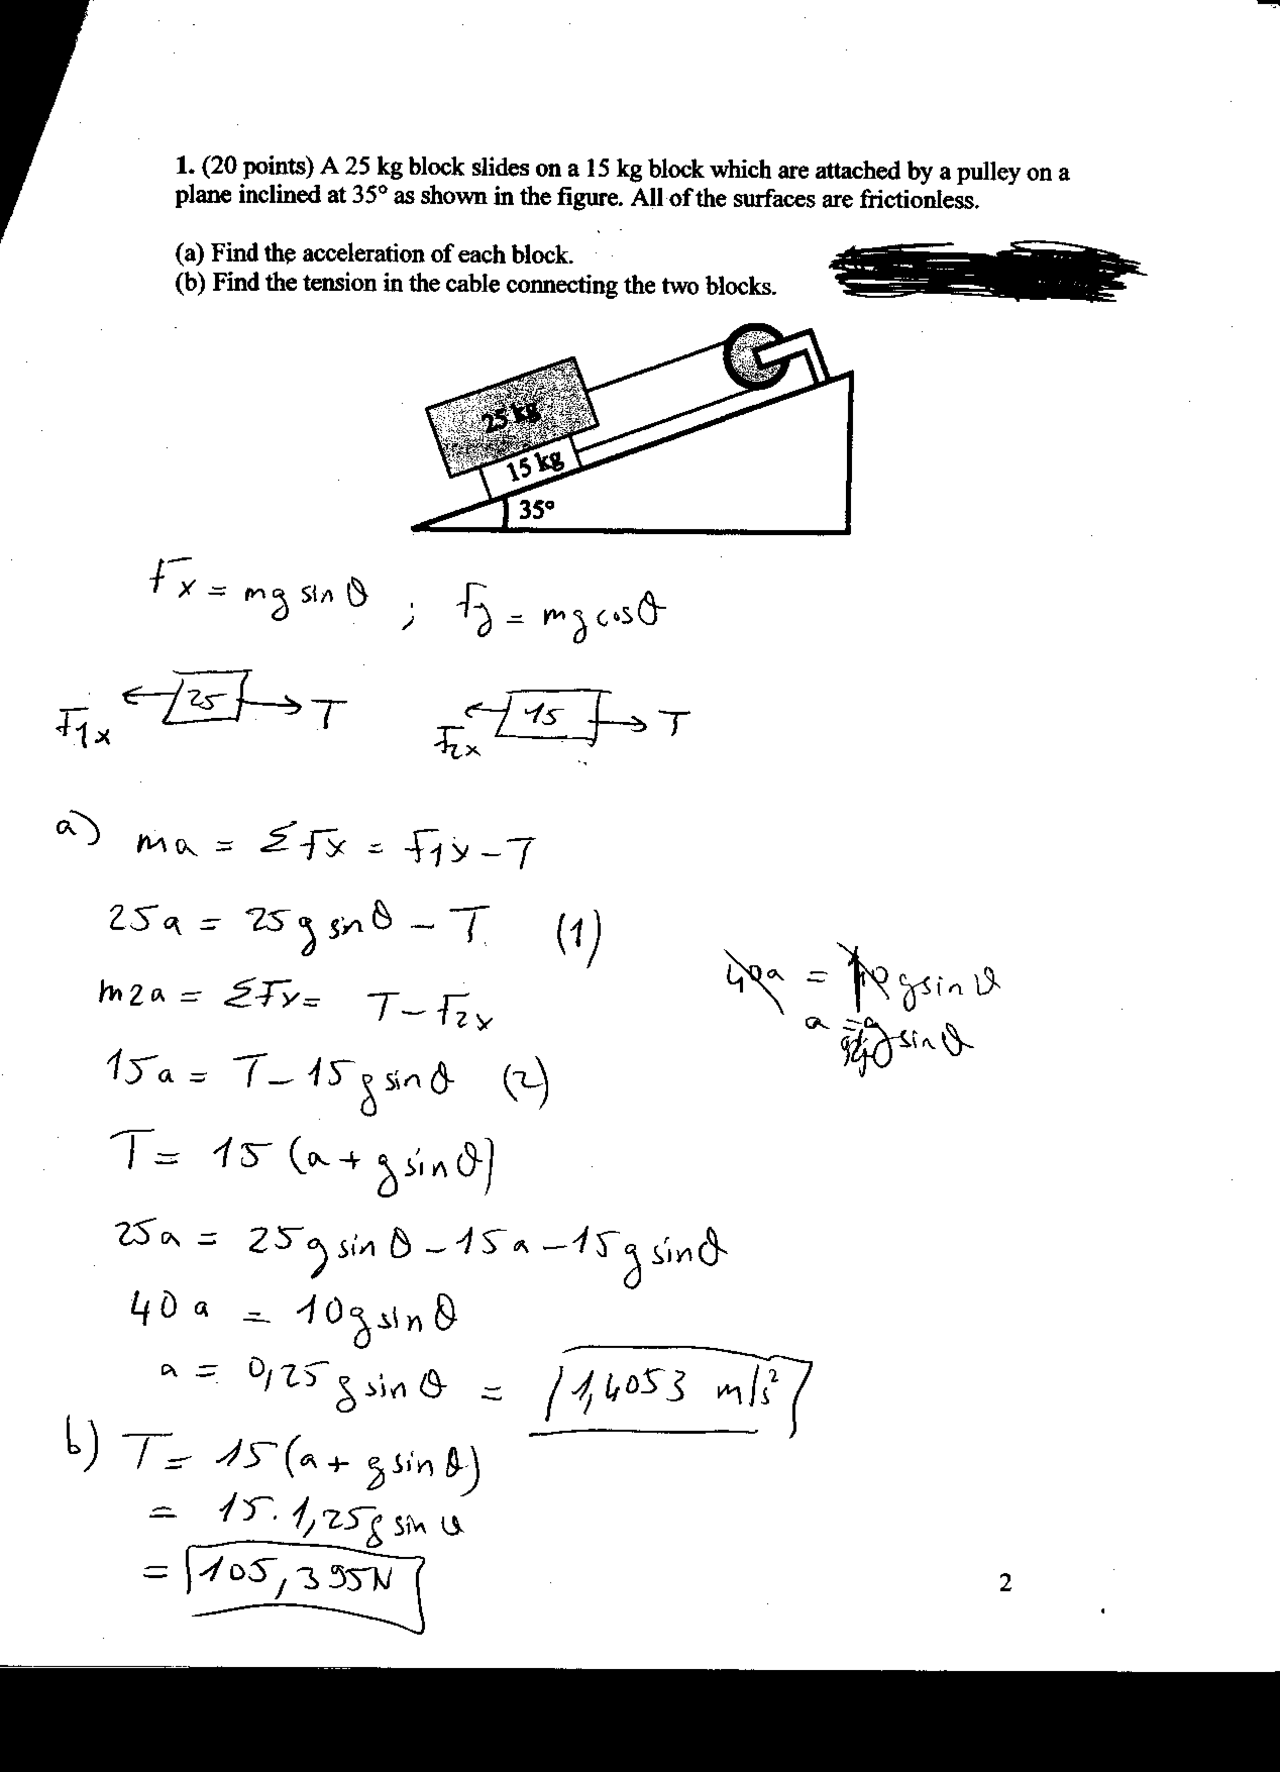 1. (20 points) A 25 kg block slides on a 15 kg block which are attached by a pulley on a
plane inclined at 35° as shown in the figure. All of the surfaces are frictionless.
(a) Find the acceleration of each block.
(b) Find the tension in the cable connecting the two blocks.
25 kg
15 kg
35°
Fx = mg sin θ ; Fy = mg cos θ
F1x 25 T F2x 15 T
a) ma = ΣFx = F1x - T
25a = 25g sin θ - T (1)
m2a = ΣFx = T - F2x
40a = 10 g sin θ
a = g sin θ
15a = T - 15 g sin θ (2)
T = 15 (a + g sin θ)
25a = 25g sin θ - 15a - 15g sin θ
40a = 10g sin θ
a = 0,25 g sin θ = 1,4053 m/s²
b) T = 15(a + g sin θ)
= 15. 1,25g sin θ
= 105,395N
2